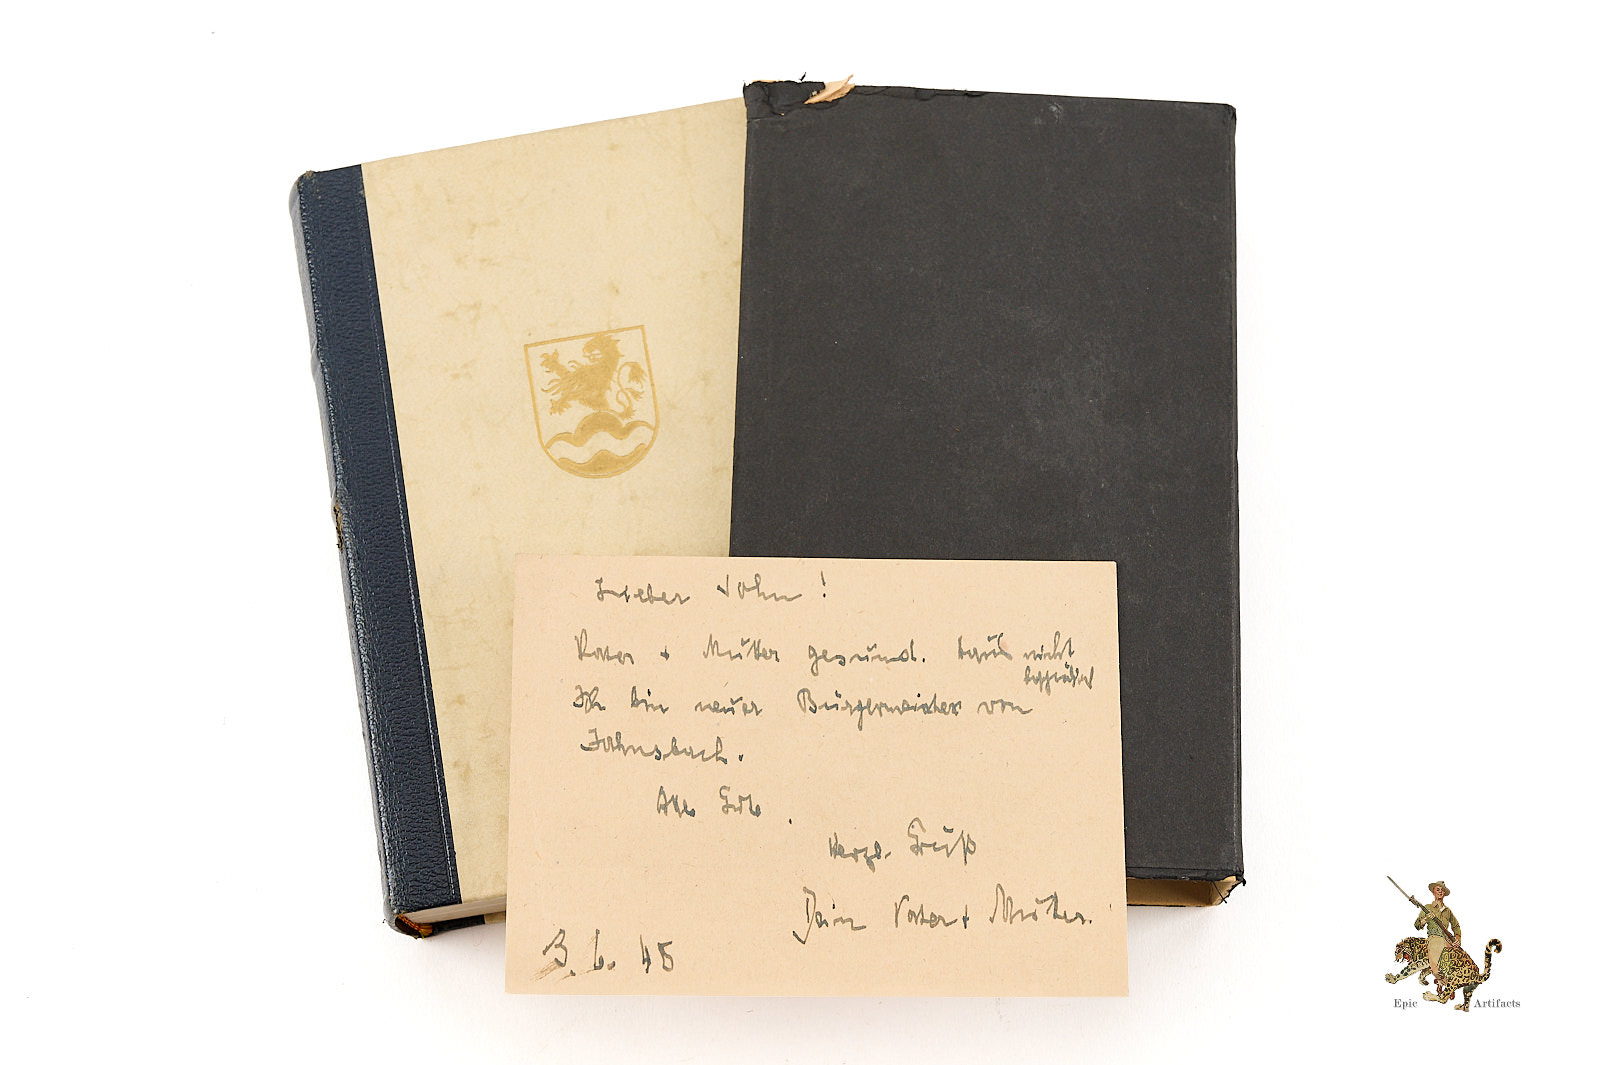 Lieber Sohn!
Vater + Mutter gesund. Haus nicht
beschädigt
Ich bin neuer Bürgermeister von
Jahnsbach.
Alles Gute.
Herzl. Gruß
Dein Vater + Mutter.
3. 6. 45
Epic Artifacts